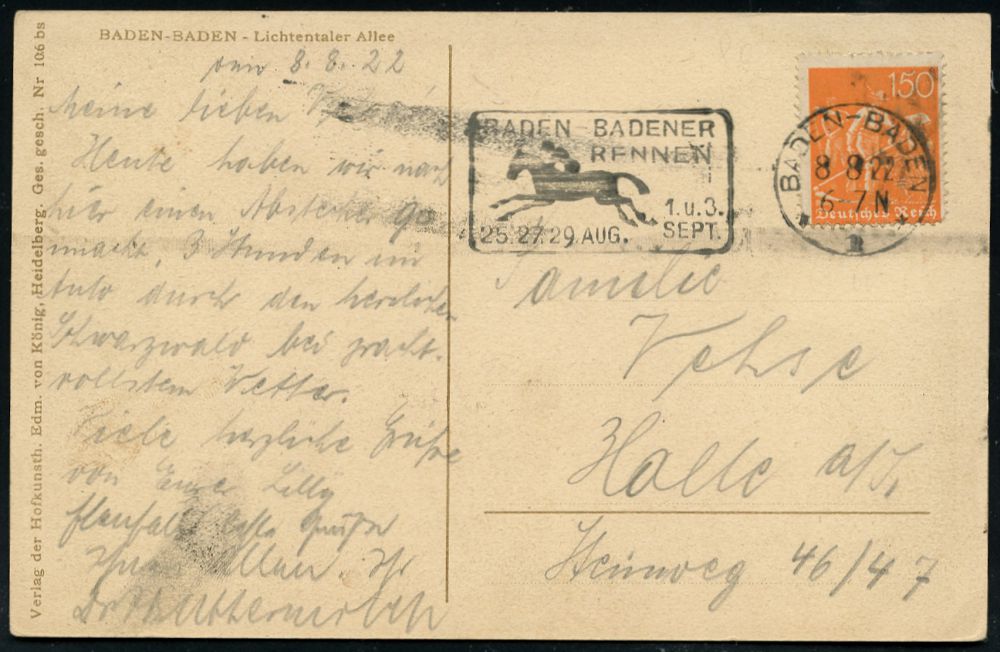 BADEN-BADEN - Lichtentaler Allee
Verlag der Hofkunsth. Edm. von König, Heidelberg. Ges. gesch Nr 106 bs
8. 8. 22
Meine lieben
Heute haben wir nach
hier einen Abstecher ge
macht, 3 Stunden im
Auto durch den herrlichen
Schwarzwald bei pracht-
vollstem Wetter.
Viele herzliche Grüße
von Eurer Lilly
Ebenfalls beste Grüße
Ihnen Allen. Ihr
Dr
BADEN-BADENER
RENNEN
1.u.3.
SEPT.
25.27.29.AUG.
150
Deutsches Reich
BADEN-BADEN
8 8 22
6-7 N
Familie
Vehse
Halle a/S.
Steinweg 46/47